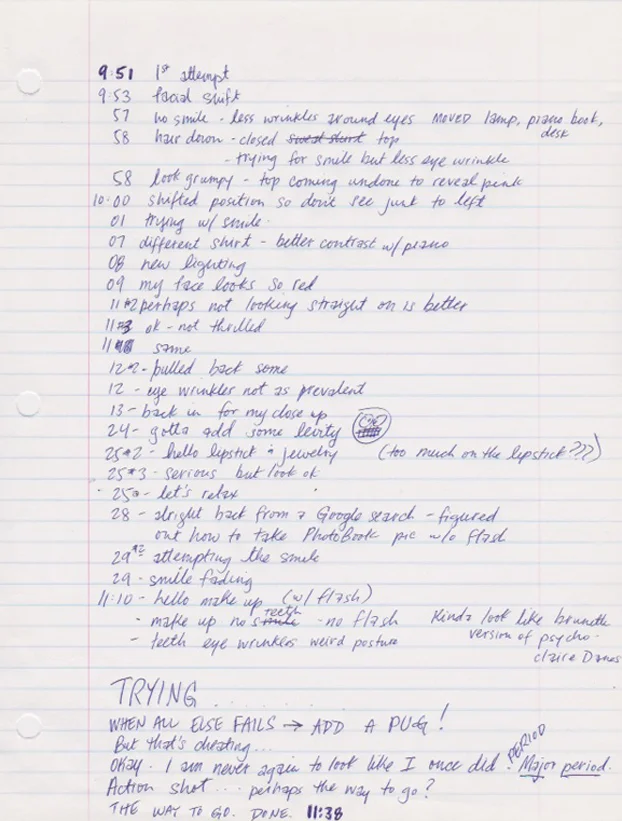 9:51 1st attempt
9:53 facial shift
57 no smile - less wrinkles around eyes MOVED lamp, piano book,
desk
58 hair down - closed sweat shirt top
- trying for smile but less eye wrinkle
58 look grumpy - top coming undone to reveal pink
10:00 shifted position so don't see junk to left
01 trying w/ smile.
07 different shirt - better contrast w/ piano
08 new lighting
09 my face looks so red
11#2 perhaps not looking straight on is better
11#3 ok - not thrilled
11 same
12#2 - pulled back some
12 - eye wrinkles not as prevalent
13 - back in for my close up
24 - gotta add some levity
25#2 - hello lipstick & jewelry (too much on the lipstick???)
25#3 - serious but look ok
25 - let's relax
28 - alright back from a Google search - figured
out how to take PhotoBook pic w/o flash
29#2 attempting the smile
29 - smile fading
11:10 - hello make up (w/ flash)
- make up no smile teeth - no flash Kinda look like brunette
- teeth eye wrinkles weird posture version of psycho.
Claire Danes
TRYING.......
WHEN ALL ELSE FAILS → ADD A PUG!
But that's cheating...
Okay. I am never again to look like I once did. PERIOD? Major period.
Action shot... perhaps the way to go?
THE WAY TO GO. DONE. 11:38